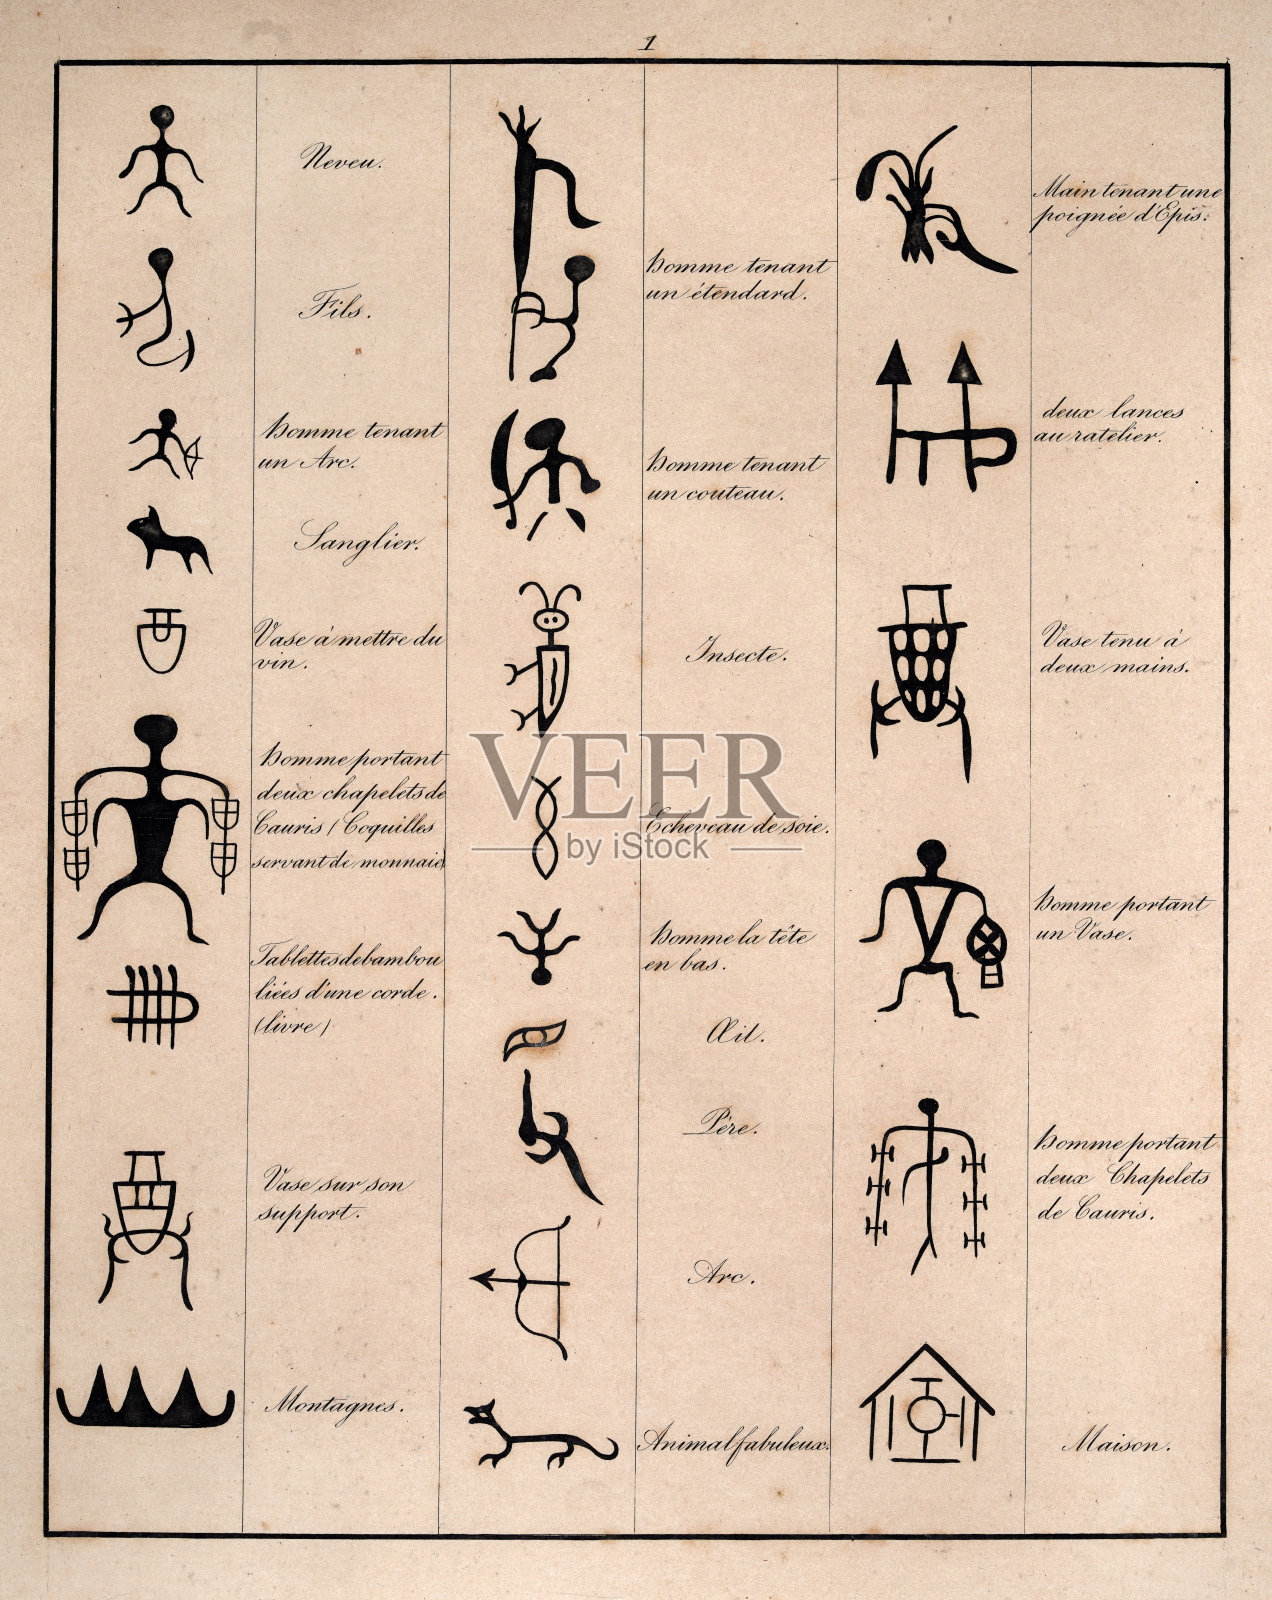 1
Neveu.
Fils.
homme tenant
un Arc.
Sanglier.
Vase à mettre du
vin.
homme portant
deux chapelets de
Cauris (Coquilles
servant de monnaie)
Tablettes de bambou
liées d'une corde.
(livre)
Vase sur son
support.
Montagnes.
homme tenant
un étendard.
homme tenant
un couteau.
Insecte.
Echeveau de soie.
homme la tête
en bas.
Œil.
Père.
Arc.
Animal fabuleux.
Main tenant une
poignée d'Epis.
deux lances
au ratelier.
Vase tenu à
deux mains.
homme portant
un Vase.
homme portant
deux Chapelets
de Cauris.
Maison.
VEER
by iStock